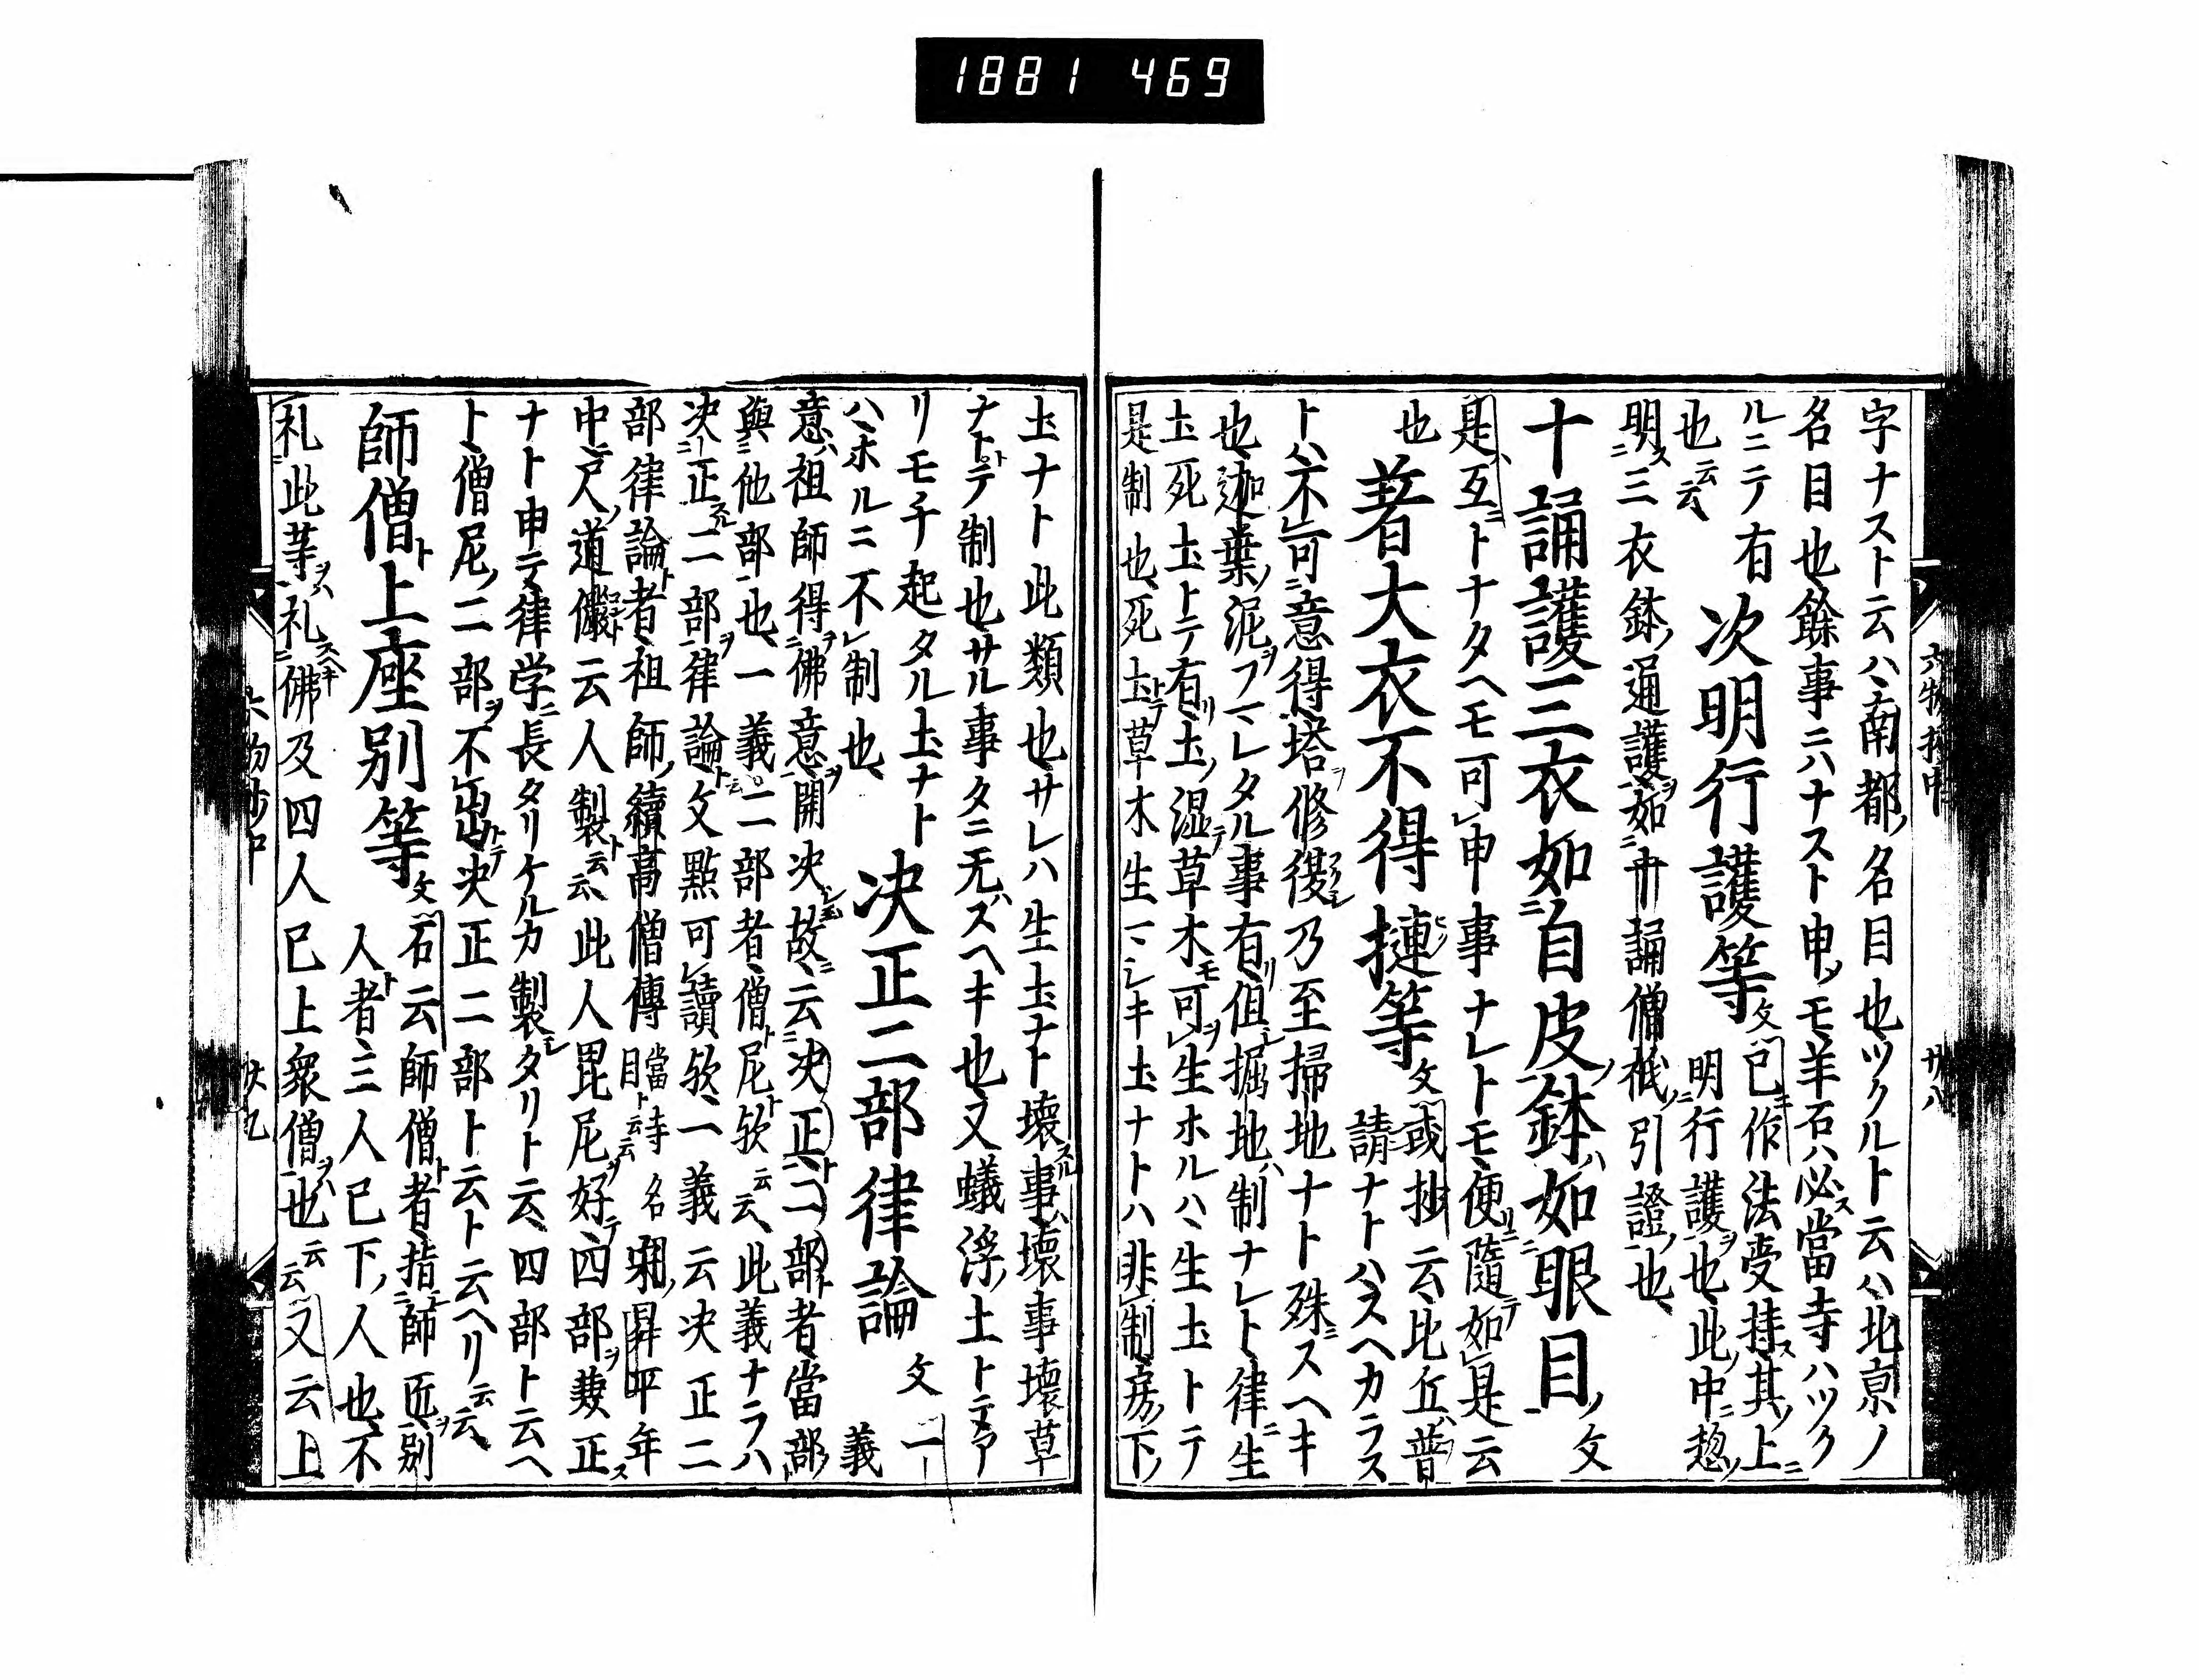 1881 469
字ナスト云ハ南都ノ名目也ツクルト云ハ北京ノ
名目也餘事ニハナスト申モ羊石ハ必當寺ハツク
ルニテ有 次明行護等文 已作法受持其上
也云云 明行護也此中惣
明三衣鉢通護如十誦僧祇引證也
十誦護三衣如自皮鉢如眼目文
是互トナタヘモ可申事ナレトモ便隨如是云
也 著大衣不得揵等文 或抄云比丘普
請ナトハスヘカラス
トハ不可意得塔修復乃至掃地ナト殊ニスヘキ
也迦葉泥フマレタル事有但掘地制ナレト律生
土死土トテ有土湿草木可生ホルハ生土トテ
是制也死土草木生マシキ土ナトハ非制房下
六物抄中 廿八
土ナト此類也サレハ生土ナト壞事壞事壞草
ナトテ制也サル事タニ无スヘキ也又蟻浮土トテア
リモチ起タル土ナト 决正二部律論文 一義
ハホルニ不制也
意祖師得佛意開决故云决正二部者當部
與他部也一義二部者僧尼欤云云此義ナラハ
决正二部律論文點可讀欤一義云决正二
部律論者祖師續高僧傳目當寺云云名昇平年
中尺道儼云人製云云此人毘尼好四部兼正
ナト申テ律学長タリケルカ製タリト云四部ト云ヘ
ト僧尼二部不出决正二部ト云ト云ヘリ云云
師僧上座别等文 石云師僧者指師匠别
人者三人已下人也不
礼此等礼佛及四人已上衆僧也云云又云上
六物抄中 廿九